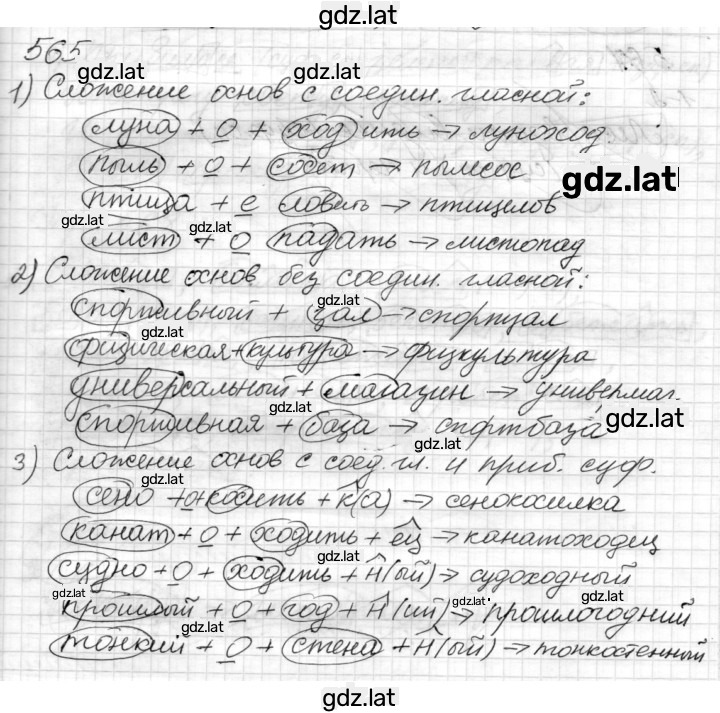 gdz.lat
565
gdz.lat
1) Сложение основ с соедин. гласной:
gdz.lat
луна + о + ход ить → луноход
пыль + о + сосет → пылесос
gdz.lat
птица + е ловить → птицелов
gdz.lat
gdz.lat
лист + о падать → листопад
2) Сложение основ без соедин. гласной:
gdz.lat
спортивный + зал → спортзал
gdz.lat
физическая + культура → физкультура
универсальный + магазин → универмаг.
gdz.lat
gdz.lat
спортивная + база → спортбаза
gdz.lat
3) Сложение основ с соед. гл. и приб. суф.
gdz.lat
сено + о + косить + к(а) → сенокосилка
канат + о + ходить + ец → канатоходец
gdz.lat
судно + о + ходить + н(ый) → судоходный
gdz.lat
gdz.lat
прошлый + о + год + н(ий) → прошлогодний
gdz.lat
gdz.lat
тонкий + о + стена + н(ый) → тонкостенный
gdz.lat